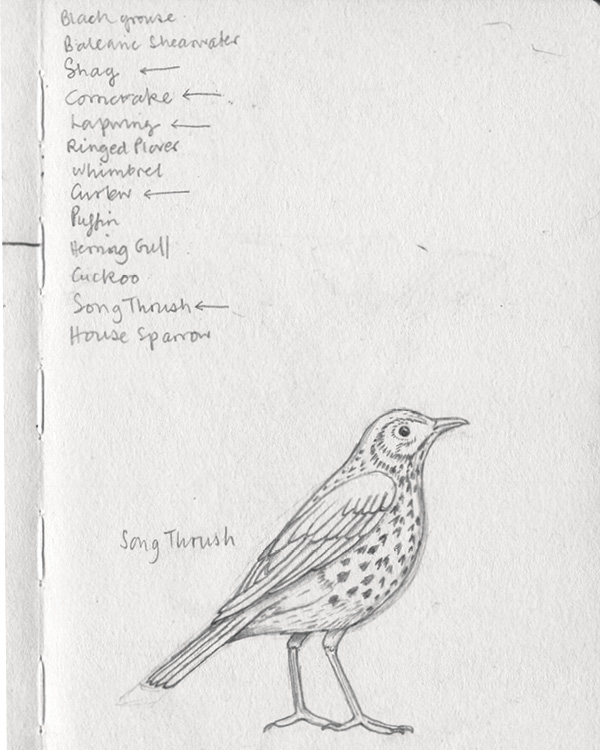 Black grouse
Balearic Shearwater
Shag ←
Corncrake ←
Lapwing ←
Ringed Plover
Whimbrel
Curlew ←
Puffin
Herring Gull
Cuckoo
Song Thrush ←
House Sparrow
Song Thrush